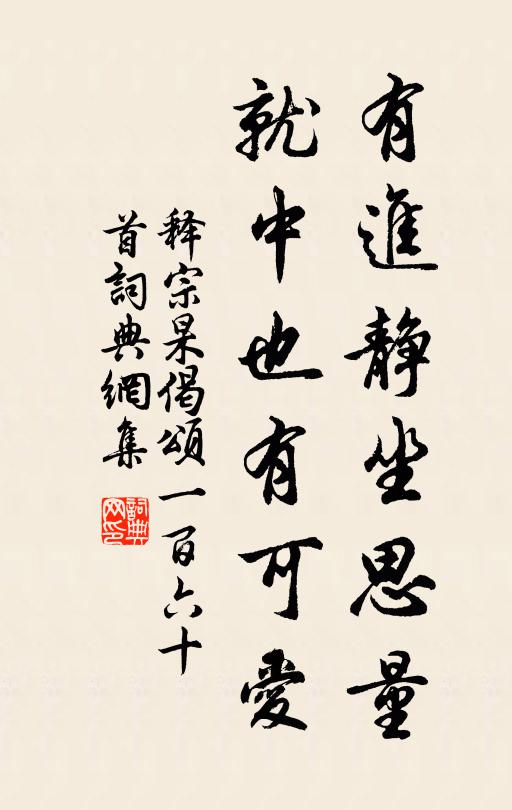 有進静坐思量
就中也有可愛
释宗杲偈頌一百六十
首詞典網集
詞典
网印